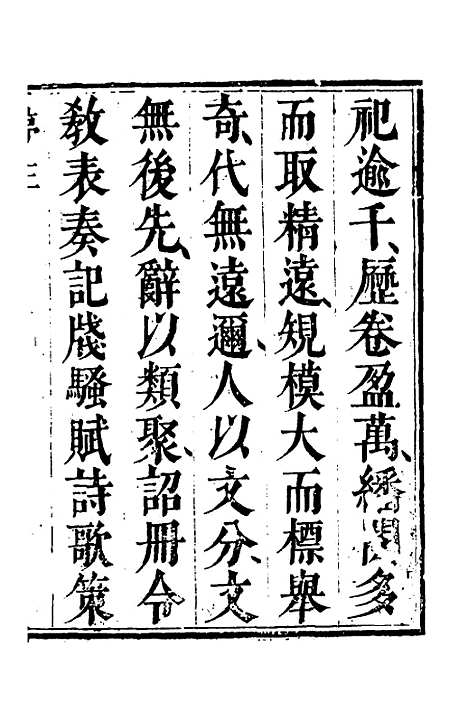 祀逾千、歷卷盈萬、繙閱多
而取精遠、規模大而標舉
奇、代無遠邇、人以文分、文
無後先、辭以類聚、詔冊令
教表奏記牋騷賦詩歌策